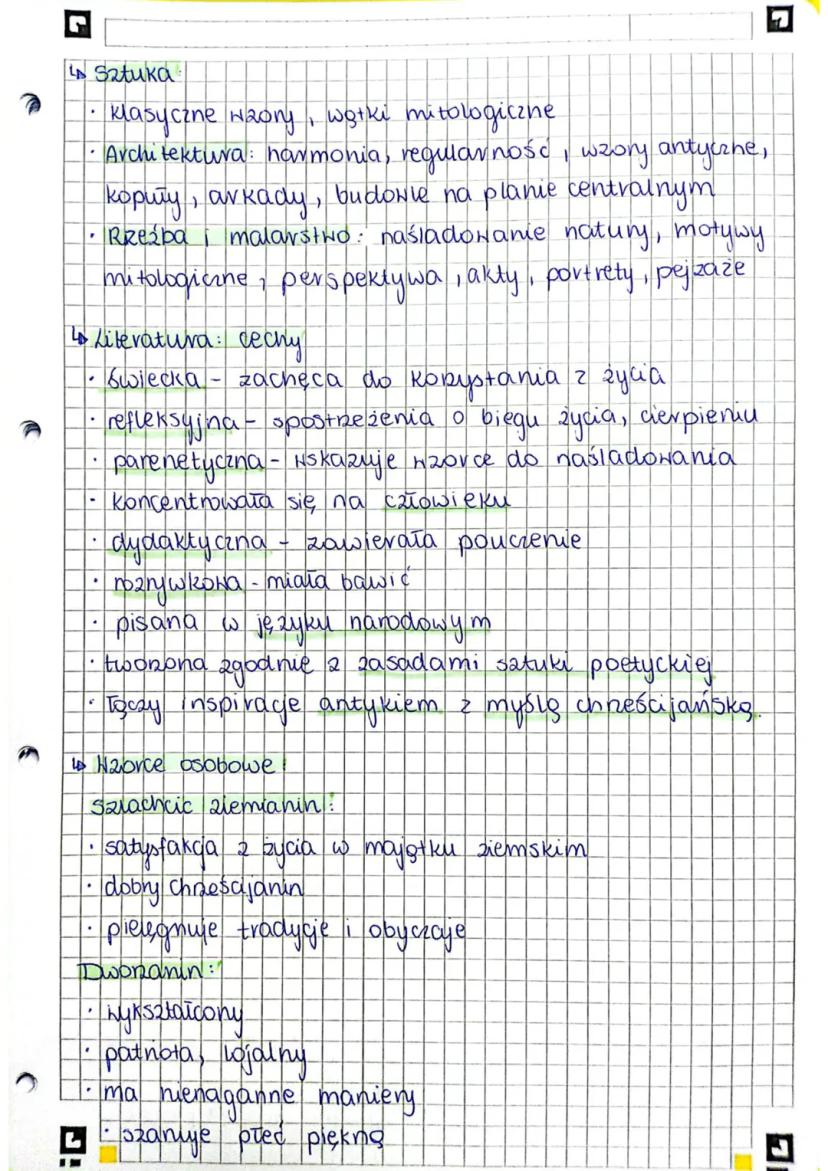 ↳ Sztuka:
· klasyczne wzory, wątki mitologiczne
· Architektura: harmonia, regularność, wzory antyczne,
kopuły, arkady, budowle na planie centralnym
· Rzeźba i malarstwo: naśladowanie natury, motywy
mitologiczne, perspektywa, akty, portrety, pejzaże
↳ Literatura: cechy
· świecka - zachęca do korzystania z życia
· refleksyjna - spostrzeżenia o biegu życia, cierpieniu
· parenetyczna - wskazuje wzorce do naśladowania
· koncentrowała się na człowieku
· dydaktyczna - zawierała pouczenie
· rozrywkowa - miała bawić
· pisana w języku narodowym
· tworzona zgodnie z zasadami sztuki poetyckiej
· łączy inspiracje antykiem z myślą chrześcijańską.
↳ Wzorce osobowe:
szlachcic ziemianin:
· satysfakcja z życia w majątku ziemskim
· dobry chrześcijanin
· pielęgnuje tradycje i obyczaje
Dworzanin:
· wykształcony
· patriota, lojalny
· ma nienaganne maniery
· szanuje płeć piękną